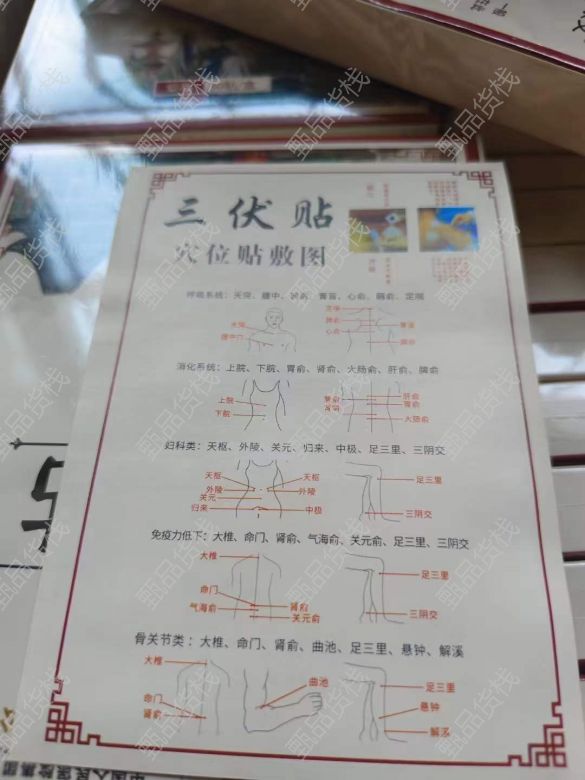 三伏贴
穴位贴敷图
呼吸系统：天突、膻中、肺俞、膏肓、心俞、膈俞、定喘
天突
膻中
定喘
肺俞
心俞
膏肓
膈俞
消化系统：上脘、下脘、胃俞、肾俞、大肠俞、肝俞、脾俞
上脘
下脘
肾俞
肝俞
胃俞
大肠俞
妇科类：天枢、外陵、关元、归来、中极、足三里、三阴交
天枢
外陵
关元
归来
天枢
外陵
中极
足三里
三阴交
免疫力低下：大椎、命门、肾俞、气海俞、关元俞、足三里、三阴交
大椎
命门
气海俞
肾俞
关元俞
足三里
三阴交
骨关节类：大椎、命门、肾俞、曲池、足三里、悬钟、解溪
大椎
命门
肾俞
曲池
足三里
悬钟
解溪
甄品货栈